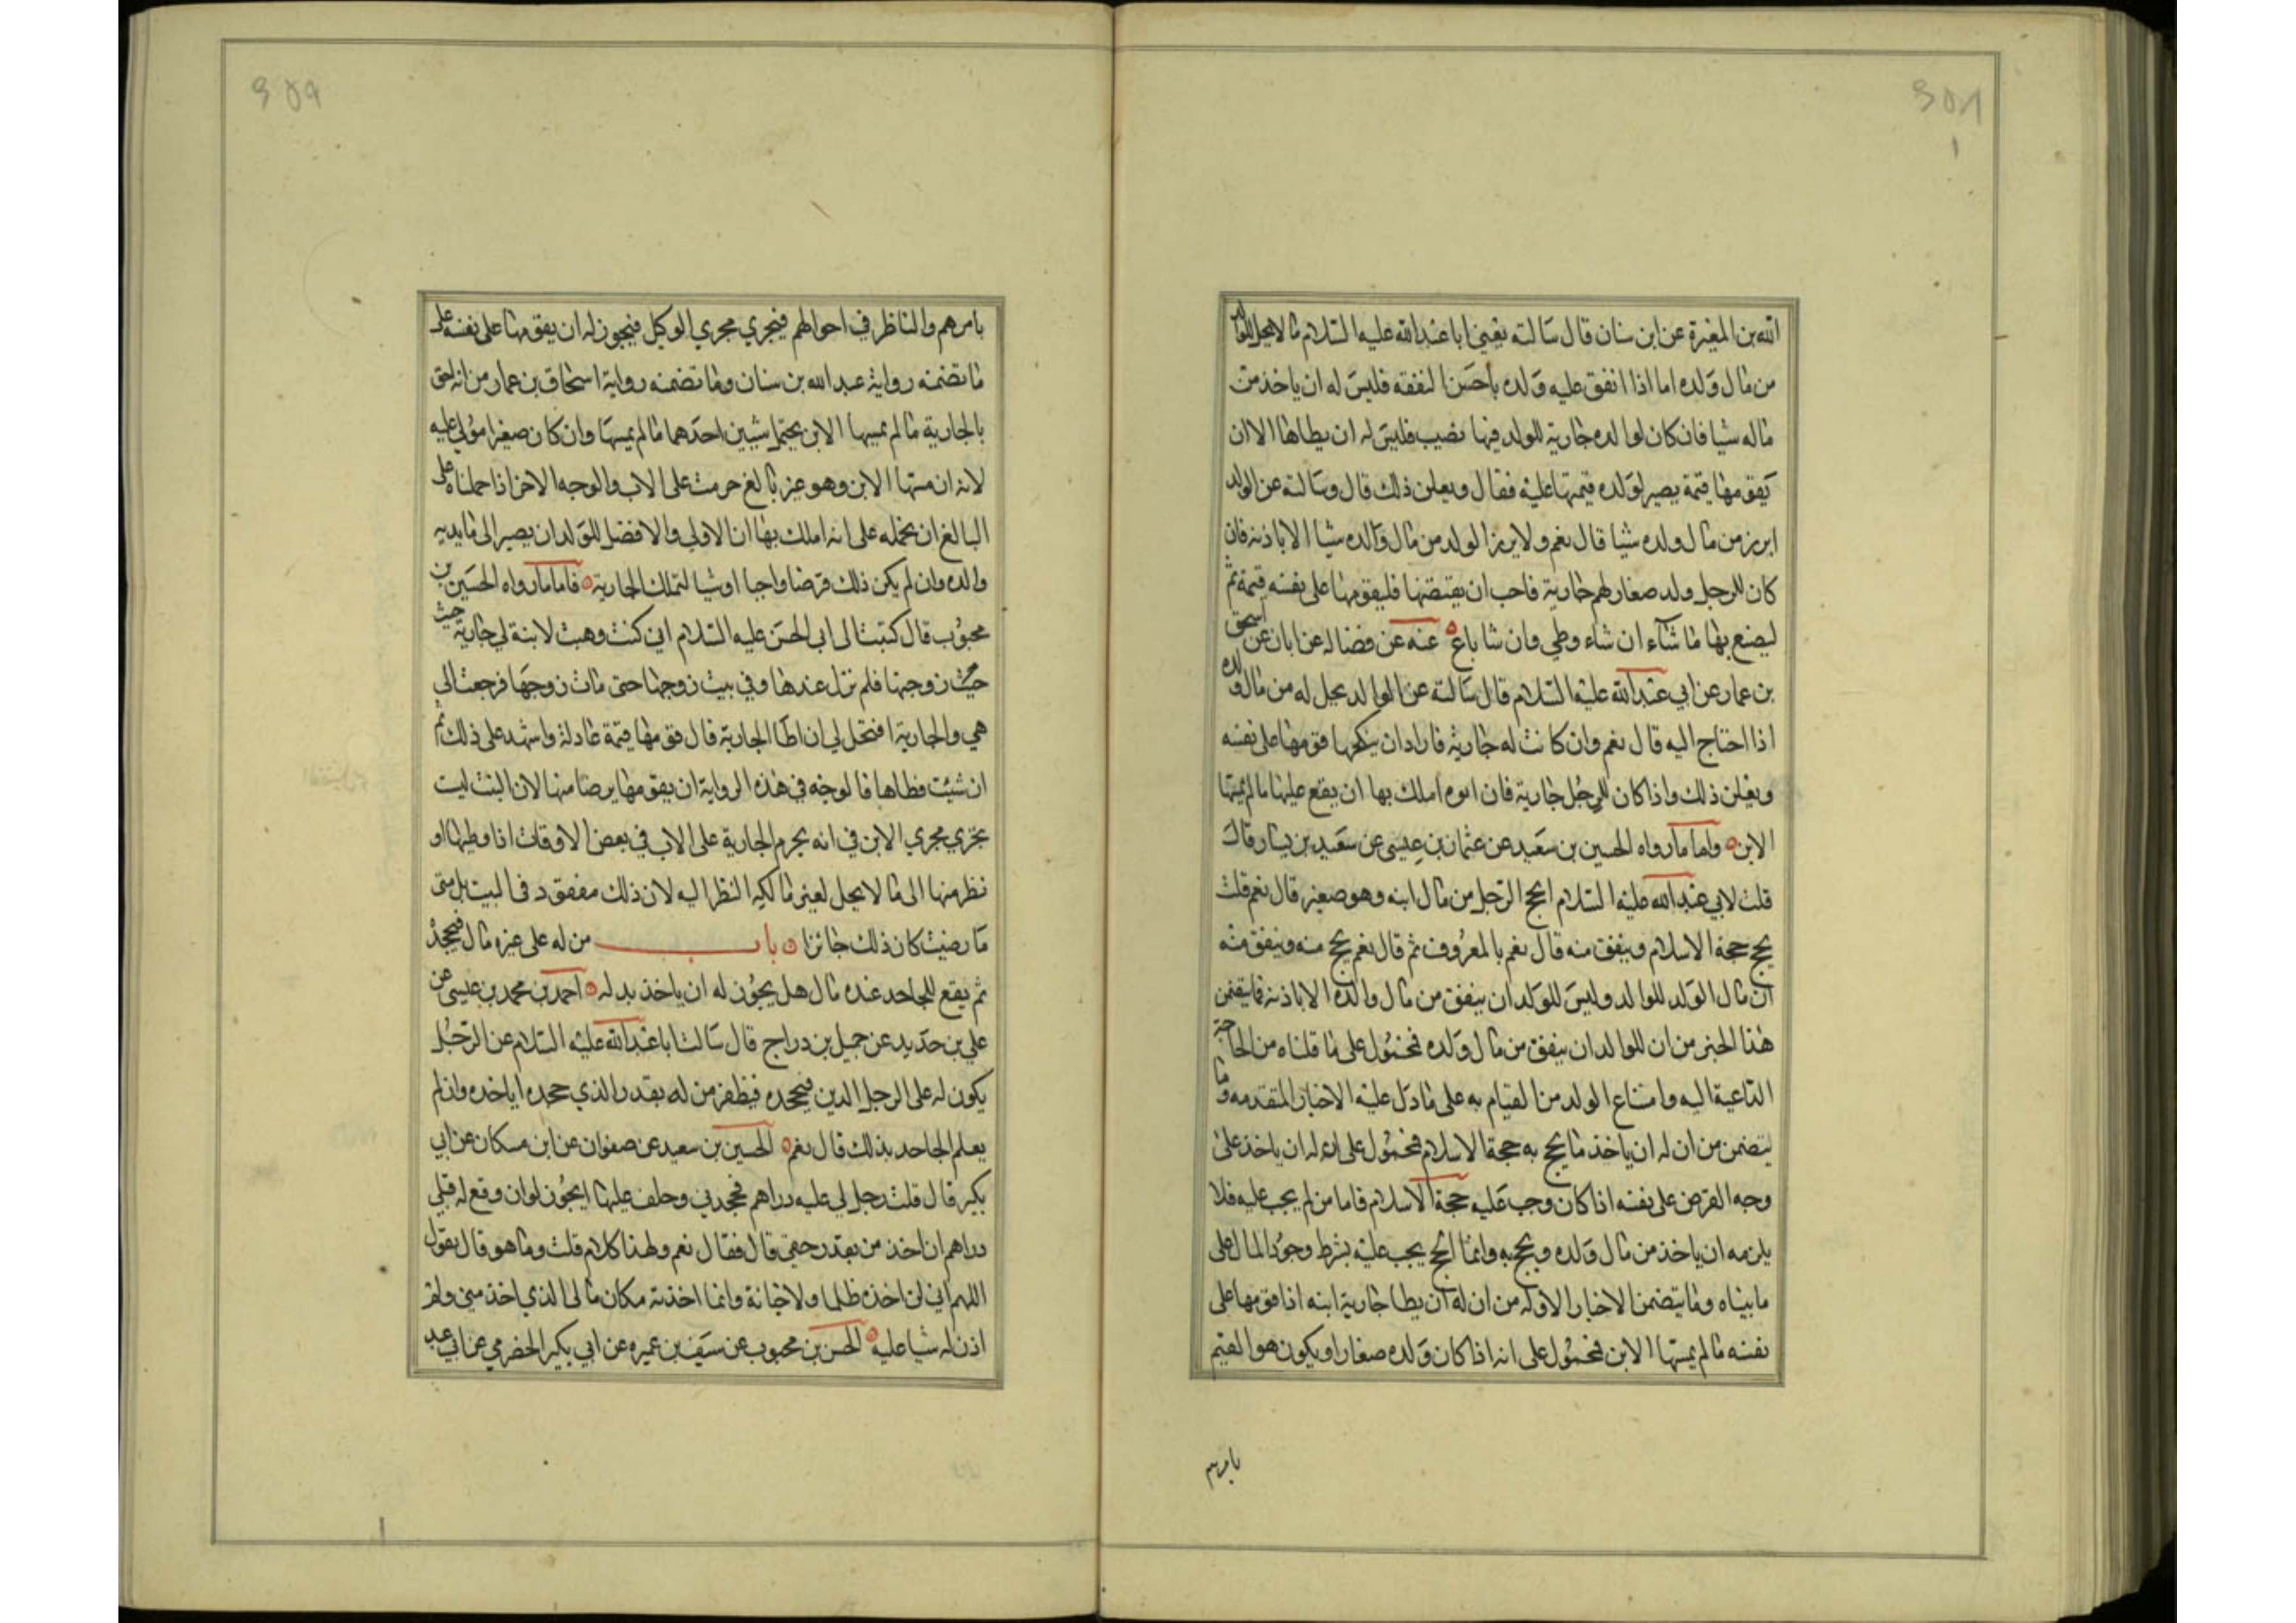 الله بن المغيرة عن ابن سنان قال سالته يعني ابا عبد الله عليه السلام ما لا يحل للوالد
من مال ولده اما اذا انفق عليه ولده باحسن النفقه فليس له ان ياخذ من
ماله شيا فان كان لوالده جارية للولد فيها نصيب فليس له ان يطاها الا ان
يقومها قيمة يصير لولده قيمتها عليه فقال ويعلن ذلك قال وسالته عن الوالد
ايرز من مال ولده شيا قال نعم ولا يرز الولد من مال والده شيا الا باذنه فان
كان للرجل ولد صغار لهم جارية فاحب ان يقتضها فليقومها على نفسه قيمة ثم
ليصنع بها ما شاء ان شاء وطي وان شا باع عنه عن فضاله عن ابان عن اسحق
بن عمار عن ابي عبد الله عليه السلام قال سالته عن الوالد يحل له من مال ولده
اذا احتاج اليه قال نعم وان كانت له جارية فاراد ان ينكحها قومها على نفسه
ويعلن ذلك واذا كان للرجل جارية فان ابوه املك بها ان يقع عليها ما لم يمسها
الابن واما ما رواه الحسين بن سعيد عن عثمان بن عيسى عن سعيد بن يسار قال
قلت لابي عبد الله عليه السلام ايحج الرجل من مال ابنه وهو صغير قال نعم قلت
يحج حجة الاسلام وينفق منه قال نعم بالمعروف ثم قال نعم يحج منه وينفق منه
ان مال الولد للوالد وليس للولد ان ينفق من مال والده الا باذنه فما يتضمن
هذا الخبر من ان للوالد ان ينفق من مال ولده فمحمول على ما قلناه من الحاجة
الداعية اليه وامتناع الولد من القيام به على ما دل عليه الاخبار المتقدمه وما
يتضمن من ان له ان ياخذ ما يحج به حجة الاسلام فمحمول على ان له ان ياخذ على
وجه القرض على نفسه اذا كان وجب عليه حجة الاسلام فاما من لم يجب عليه فلا
يلزمه ان ياخذ من مال ولده ويحج به وانما الحج يجب عليه بشرط وجود المال على
ما بيناه وما يتضمن الاخبار الاوله من ان له ان يطا جارية ابنه اذا قومها على
نفسه ما لم يمسها الابن فمحمول على انه اذا كان ولده صغارا ويكون هو القيم
بامرهم
بامرهم والناظر في احوالهم فيجري مجري الوكيل فيجوز له ان يقومها على نفسه على
ما تضمنه رواية عبد الله بن سنان وما تضمنه رواية اسحاق بن عمار من انه احق
بالجارية ما لم يمسها الابن يحتمل شيين احدهما ما لم يمسها وان كان صغيرا مولي عليه
لانه ان مسها الابن وهو غير بالغ حرمت على الاب والوجه الاخر اذا حملناه على
البالغ ان نحمله على انه املك بها ان الاولي والافضل للولد ان يصير الى ما يديه
والده وان لم يكن ذلك فرضا واجبا اوشيا لتملك الجارية فاما ما رواه الحسين بن
محبوب قال كتبت الى ابي الحسن عليه السلام اني كنت وهبت لابنة لي جارية حيث
حيث زوجها فلم تزل عندها وفي بيت زوجها حتى مات زوجها فرجعت الى
هي والجارية افتحل لي ان اطا الجارية قال قومها قيمة عادلة واشهد على ذلك ثم
ان شئت فطاها فالوجه في هذه الرواية ان يقومها برضا منها لان البنت ليت
تجري مجري الابن في انه يحرم الجارية على الاب في بعض الاوقات اذا وطيها او
نظر منها الى ما لا يحل لغير مالكه النظر اليه لان ذلك مفقود في البيت بل متى
ما رضيت كان ذلك جائزا باب من له على غيره مال فيجحده
ثم يقع للجاحد عنده مال هل يجوز له ان ياخذ بدله احمد بن محمد بن عيسى عن
علي بن حديد عن جميل بن دراج قال سالت ابا عبد الله عليه السلام عن الرجل
يكون له على الرجل الدين فيجحده فيظفر من له بقدر الذي جحده اياخذه وان لم
يعلم الجاحد بذلك قال نعم الحسين بن سعيد عن صفوان عن ابن مسكان عن ابي
بكير قال قلت رجل لي عليه دراهم فجحدني وحلف عليها ايجوز لو ان وقع له قبلي
دراهم ان اخذ من بقدر حقي قال فقال نعم ولهذا كلام قلت وما هو قال يقول
اللهم اني لن اخذه ظلما ولا خانة وانما اخذته مكان مالي الذي اخذ مني ولم
اذن له شيا عليه الحسن بن محبوب عن سيف بن عميره عن ابي بكير الحضرمي عن ابي عبد